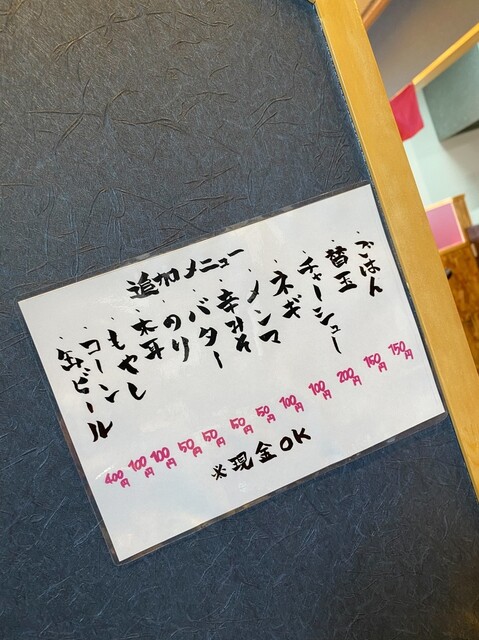 追加メニュー
・ごはん 150円
・替玉 150円
・チャーシュー 200円
・ネギ 100円
・メンマ 100円
・辛みそ 50円
・バター 50円
・のり 50円
・木耳 50円
・もやし 100円
・コーン 100円
・缶ビール 400円
※現金OK